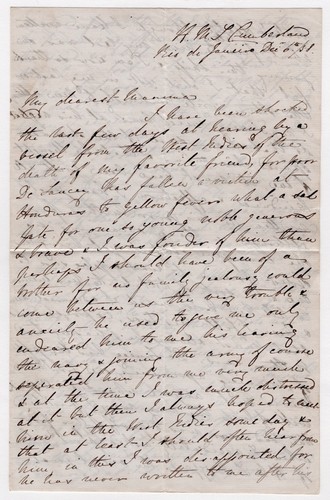 H.M.S Cumberland
Rio de Janeiro Dec 6th 51
My dearest Mamma
I have been shocked
the last few days at hearing by a
vessel from the West Indies of the
death of my favorite friend, for poor
De has fallen a victim at
Honduras to yellow fever what a sad
fate for one so young noble generous
& brave & I was fonder of him than
perhaps I should have been of a
brother for no family jealousy could
come between us the very trouble &
anxiety he used to give me only
endeared him to me his leaving
the navy & joining the army of course
seperated him from me very much
& at the time I was much distressed
at it but then I always hoped to meet
him in the West Indies some day &
that at least I should often hear from
him in this I was disappointed for
he has never written to me after his